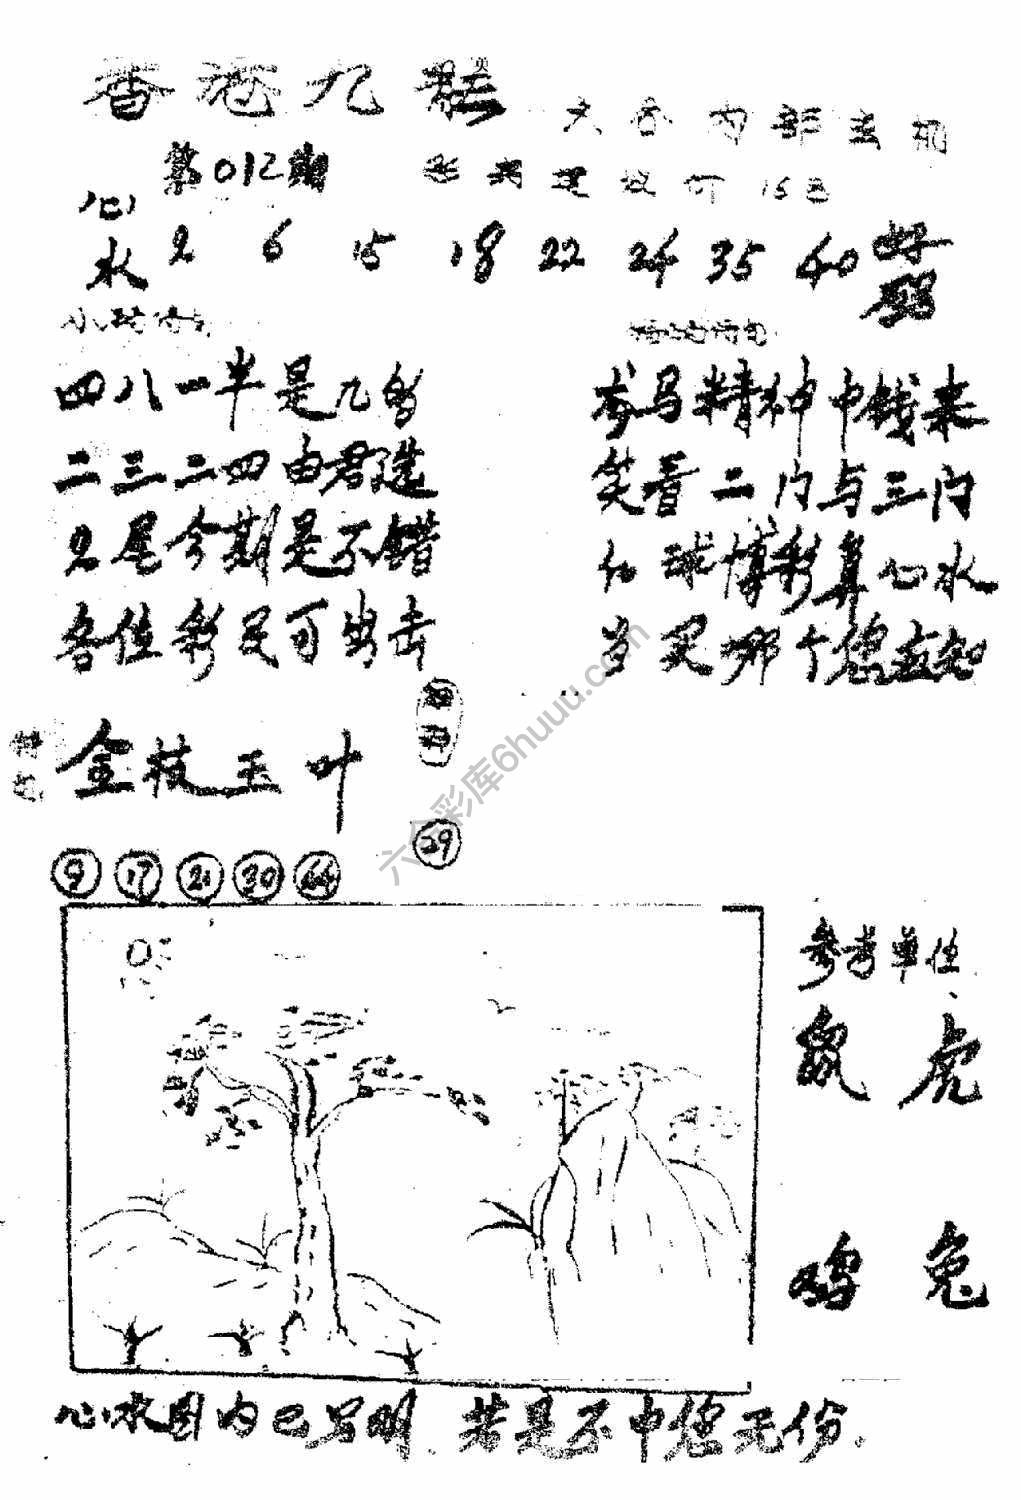 香港九龙
六合内部玄机
第012期
15元
心水 2 6 15 18 22 24 35 40 好码
四八一半是九的
二三二四由君选
2尾今期是不错
各位彩民可出击
龙马精神中钱来
笑看二门与三门
红球博彩算心水
岁买哪个您应知
金枝玉叶
29
9 17 21 30 44
参考单位
鼠 虎
鸡 兔
心水图内已写明 若是不中您无份.
六合彩库6huuu.com